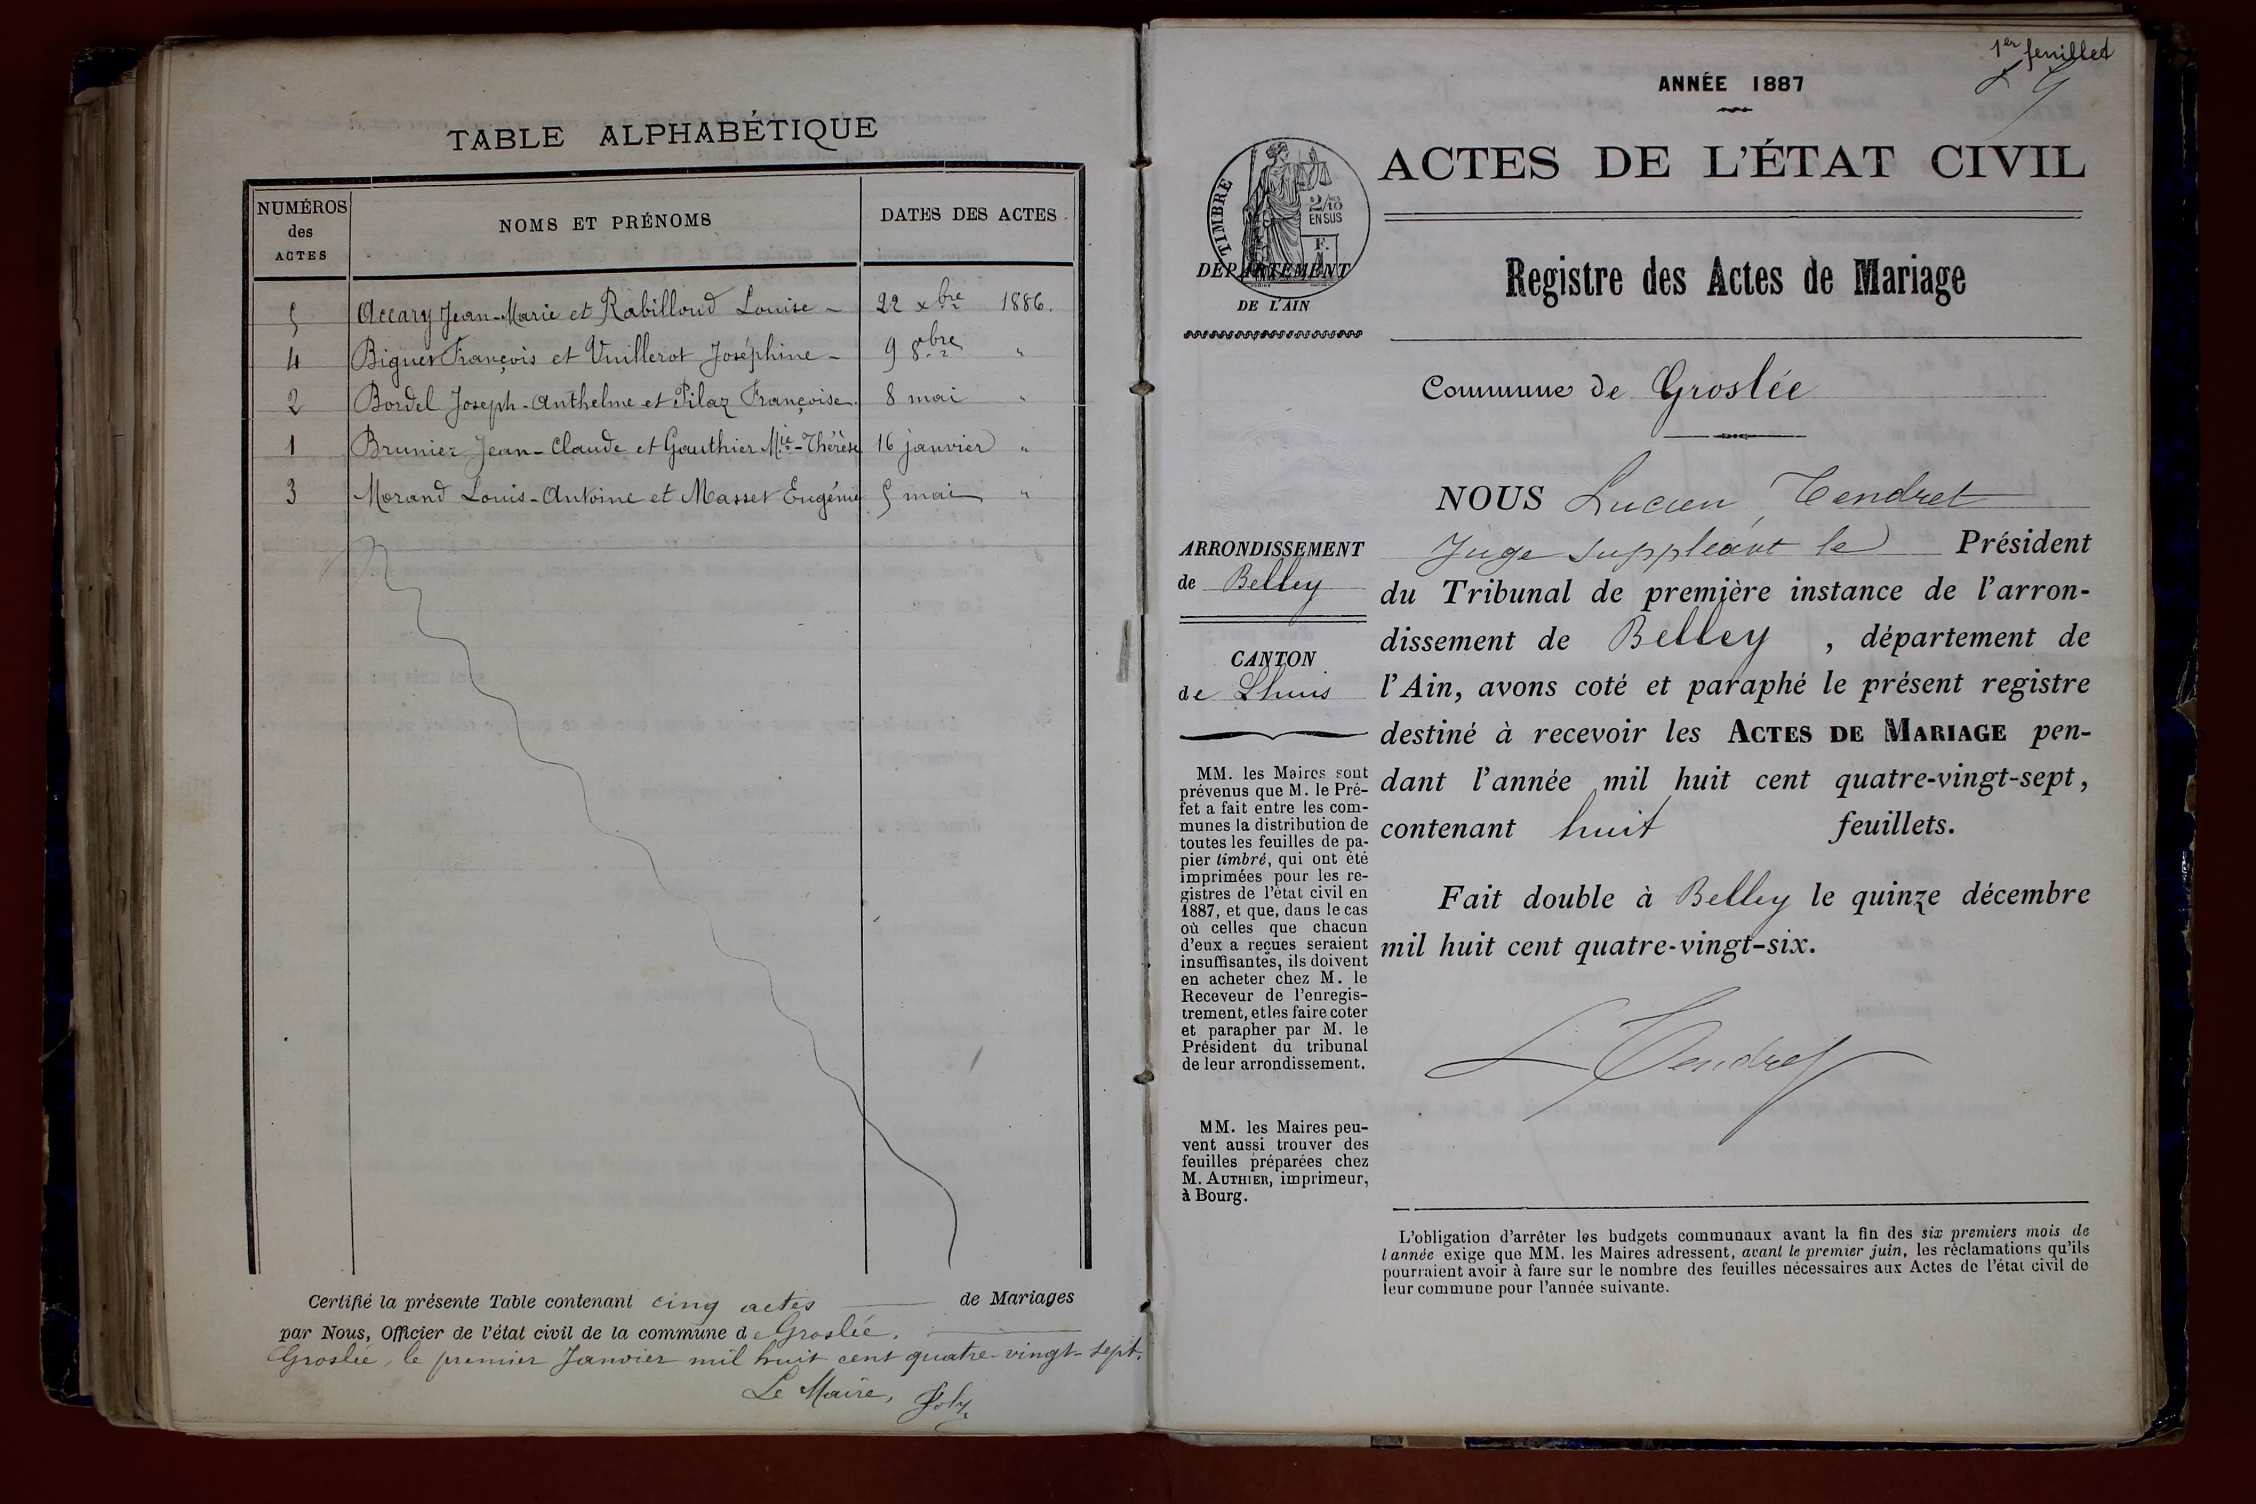 TABLE ALPHABÉTIQUE
NUMÉROS des ACTES
NOMS ET PRÉNOMS
DATES DES ACTES
5 Accary Jean-Marie et Rabilloud Louise - 22 xbre 1886.
4 Biguet François et Vuillerot Joséphine - 9 8bre "
2 Bordel Joseph-Anthelme et Pilaz Françoise. 8 mai "
1 Brunier Jean-Claude et Gauthier Mie-Thérèse 16 janvier "
3 Morand Louis-Antoine et Masset Eugénie 5 mai "
Certifié la présente Table contenant cinq actes de Mariages
par Nous, Officier de l'état civil de la commune de Groslée.
Groslée, le premier Janvier mil huit cent quatre-vingt-sept.
Le Maire, Joly
1er feuillet
ANNÉE 1887
ACTES DE L'ÉTAT CIVIL
TIMBRE
2/10
EN SUS
DÉPARTEMENT
DE L'AIN
Registre des Actes de Mariage
Commune de Groslée
ARRONDISSEMENT
de Belley
CANTON
de Lhuis
MM. les Maires sont
prévenus que M. le Pré-
fet a fait entre les com-
munes la distribution de
toutes les feuilles de pa-
pier timbré, qui ont été
imprimées pour les re-
gistres de l'état civil en
1887, et que, dans le cas
où celles que chacun
d'eux a reçues seraient
insuffisantes, ils doivent
en acheter chez M. le
Receveur de l'enregis-
trement, et les faire coter
et parapher par M. le
Président du tribunal
de leur arrondissement.
MM. les Maires peu-
vent aussi trouver des
feuilles préparées chez
M. AUTHIER, imprimeur,
à Bourg.
NOUS Lucien Tendret
Juge suppléant le Président
du Tribunal de première instance de l'arron-
dissement de Belley, département de
l'Ain, avons coté et paraphé le présent registre
destiné à recevoir les ACTES DE MARIAGE pen-
dant l'année mil huit cent quatre-vingt-sept,
contenant huit feuillets.
Fait double à Belley le quinze décembre
mil huit cent quatre-vingt-six.
L Tendret
L'obligation d'arrêter les budgets communaux avant la fin des six premiers mois de
l'année exige que MM. les Maires adressent, avant le premier juin, les réclamations qu'ils
pourraient avoir à faire sur le nombre des feuilles nécessaires aux Actes de l'état civil de
leur commune pour l'année suivante.